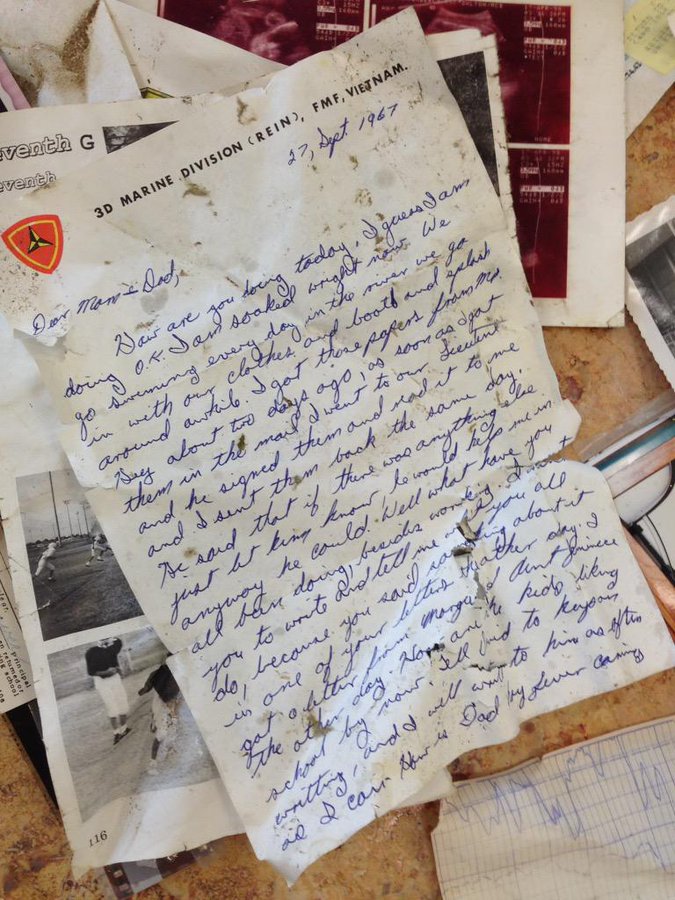 eventh G
eventh
3D MARINE DIVISION (REIN), FMF, VIETNAM.
27, Sept. 1967
Dear Mom & Dad,
How are you doing today, I guess I am
doing O.K. I am soaked wright now. We
go swimming every day in the river we go
in with our clothes and boots and splash
around awhile. I got those papers from Mr.
about two days ago, as soon as I got
them in the mail I went to our
and he signed them and read it to me
and I sent them back the same day.
He said that if there was anything else
just let him know, he would help me in
anyway he could. Well what have you
all been doing, besides working. I want
you to write and tell me you all
do, because you said something about it
in one of your letters other day. I
got a letter from Aunt
the other day. How are the kids liking
school by now. Tell Bud to keep on
writting, and I will to him as often
as I can. How is Dad by coming
116